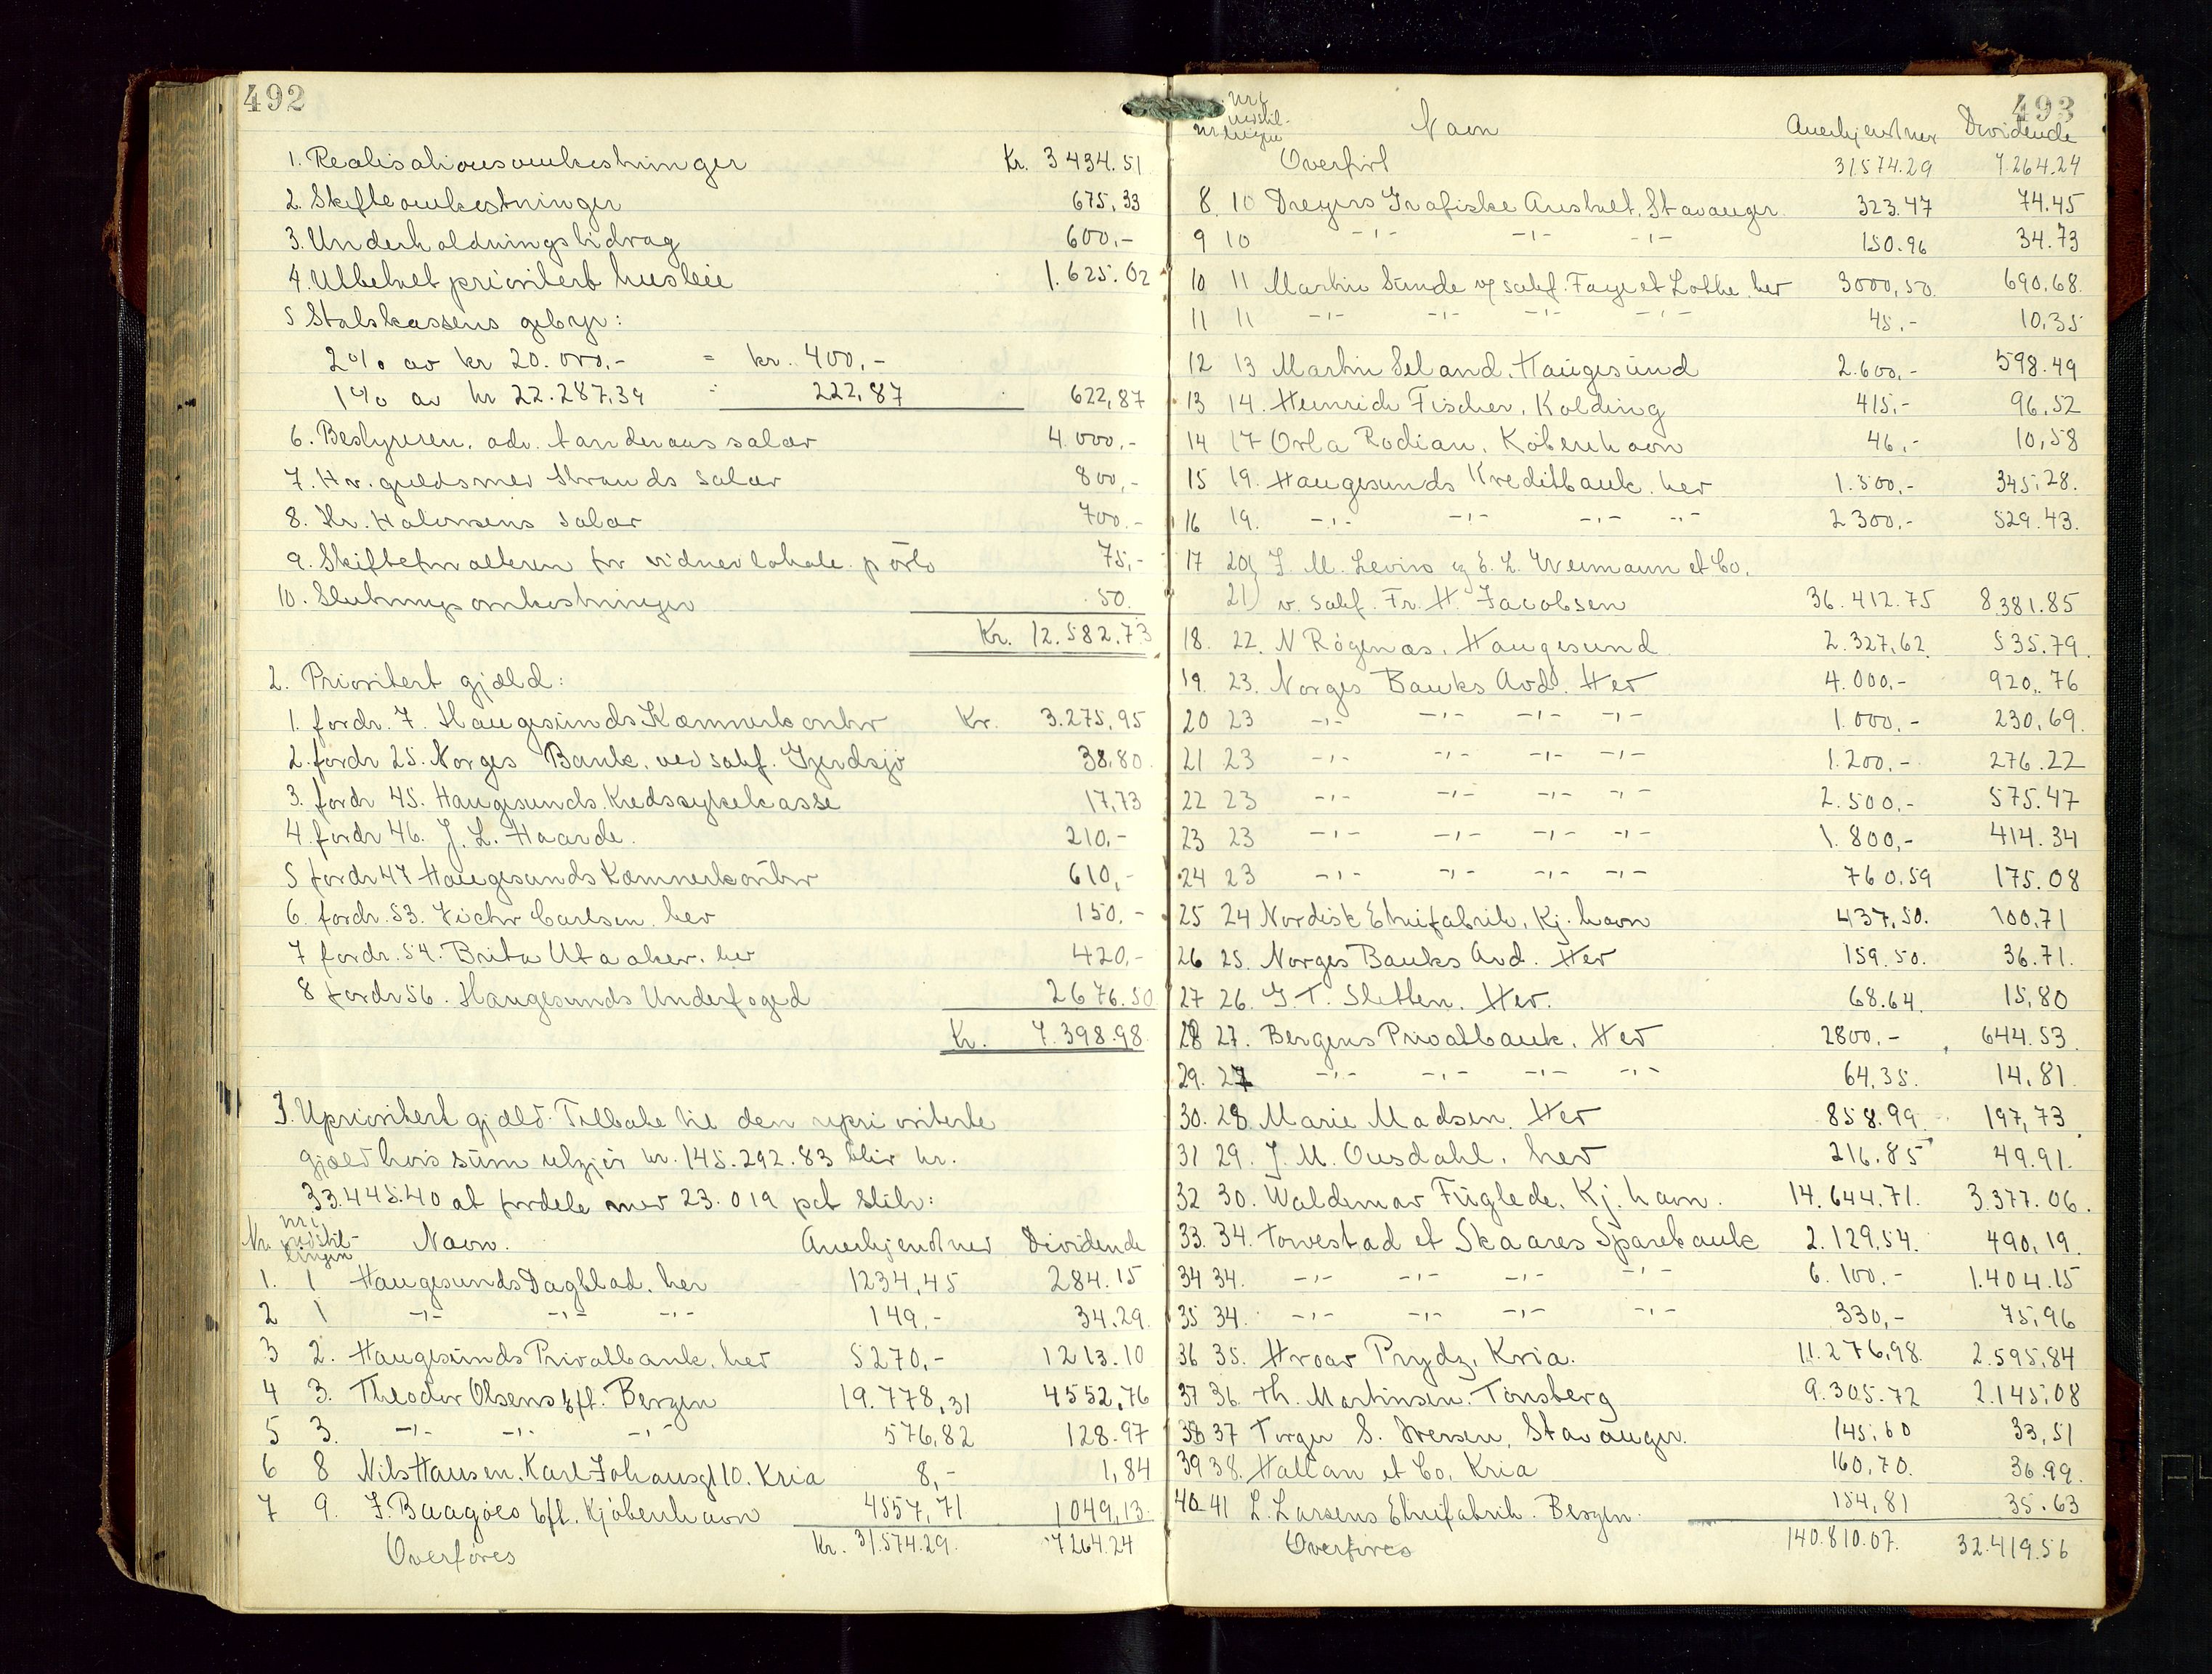 492
1. Realisationsomkostninger Kr. 3434.51
2. Skifteomkostninger 675,33
3. Underholdningsbidrag 600,-
4. Utbetalt prioritert husleie 1.625.02
5 Statskassens gebyr:
2% av kr 20.000,- = kr. 400,-
1% av kr 22.287,39 = 222,87 622,87
6. Bestyreren, adv. Landeraas salær 4.000,-
7. Hr. guldsmed Strands salær 800,-
8. Hr. Halvorsens salær 700.-
9. Skifteforvalteren for vidner lokale porto 75,-
10. Slutningsomkostninger 50.
Kr. 12.582,73
2. Prioritert gjæld:
1. fordr. 7. Haugesunds Kæmnerkontor Kr. 3.275,95
2. fordr 25. Norges Bank, ved sakf. Gjerdsjø 38,80
3. fordr 45. Haugesunds Kredssykekasse 17,73
4. fordr 46. J. L. Haarde. 210,-
5 fordr 47 Haugesunds Kæmnerkontor 610,-
6. fordr. 53. Victor Carlsen, her 150.-
7 fordr. 54. Brita Utaaker, her 420,-
8 fordr 56. Haugesunds Underfoged 2676.50
Kr. 7.398.98
3. Uprioritert gjæld. Tilbake til den uprioriterte
gjæld hvis sum utgjør kr. 145.292.83 blir kr.
33.445.40 at fordele med 23.019 pct slik:
Nr. nr i indstillingen Navn. Anerkjendt med Dividende
1. 1 Haugesunds Dagblad, her 1234,45 284.15
2 1 -"- -"- -"- 149,- 34.29.
3 2. Haugesunds Privatbank, her 5270,- 1213.10
4 3. Theodor Olsens Eft. Bergen 19.778,31 4552,76
5 3. -"- -"- -"- 576,82 128.97
6 8 Nils Hansen, Karl Johansgt 10. Kria 8,- 1,84
7 9. J. Baagøes Eft. Kjøbenhavn 4557,71 1049,13.
Overføres Kr. 31.574.29. 7264.24
493
nr nr i indstillingen Navn Anerkjendt med Dividende
Overført 31.574.29 7.264.24
8. 10 Dreyers Grafiske Anstalt, Stavanger. 323.47 74.45
9 10 -"- -"- -"- 150.96 34.73
10 11 Martin Sunde v/ sakf. Faye et Lothe, her 3000,50. 690.68.
11 11 -"- -"- -"- -"- 45,- 10,35
12 13 Martin Seland, Haugesund 2.600,- 598.49
13 14. Heinrich Fischer, Kolding 415,- 96,52
14 17 Orla Rodian, København 46,- 10,58
15 19. Haugesunds Kreditbank, her 1.500,- 345,28.
16 19. -"- -"- -"- -"- 2300,- 529.43.
17 20) J. M. Levins og E. L. Weimann et Co.
21) v. sakf. Fr. H. Jacobsen 36.412.75 8.381.85
18. 22. N Røgenæs, Haugesund 2.327,62. 535.79.
19. 23. Norges Banks Avd. Her 4.000,- 920,76
20 23 -"- -"- -"- -"- 1.000,- 230,69.
21 23 -"- -"- -"- -"- 1.200,- 276.22
22 23 -"- -"- -"- -"- 2.500,- 575.47
23 23 -"- -"- -"- -"- 1.800,- 414.34
24 23 -"- -"- -"- -"- 760.59 175.08
25 24 Nordisk Etuifabrik, Kj.havn 437,50. 100.71
26 25. Norges Banks Avd. Her 159.50. 36.71.
27 26. G. T. Sletten. Her. 68.64. 15,80
28 27. Bergens Privatbank. Her 2800.- 644.53.
29. 27 -"- -"- -"- -"- 64,35. 14,81.
30. 28 Marie Madsen. Her 858.99. 197,73.
31 29. J. M. Ousdahl. her 216.85 49.91.
32 30. Waldemar Fuglede, Kj.havn. 14.644.71. 3.377.06.
33. 34. Torvestad et Skaares Sparebank 2.129,54. 490,19.
34 34. -"- -"- -"- -"- 6.100.- 1.404.15
35 34. -"- -"- -"- -"- 330,- 75,96
36 35. Hroar Prydz, Kria. 11.276,98. 2.595,84
37 36. Th. Martinsen. Tønsberg 9.305.72 2.145,08
38 37 Torger S. Iversen, Stavanger. 145,60 33,51
39 38. Hallan et Co, Kria 160,70. 36.99.
40 41 L. Larsens Etuifabrik. Bergen. 154,81 35.63
Overføres 140.810.07. 32.419.56